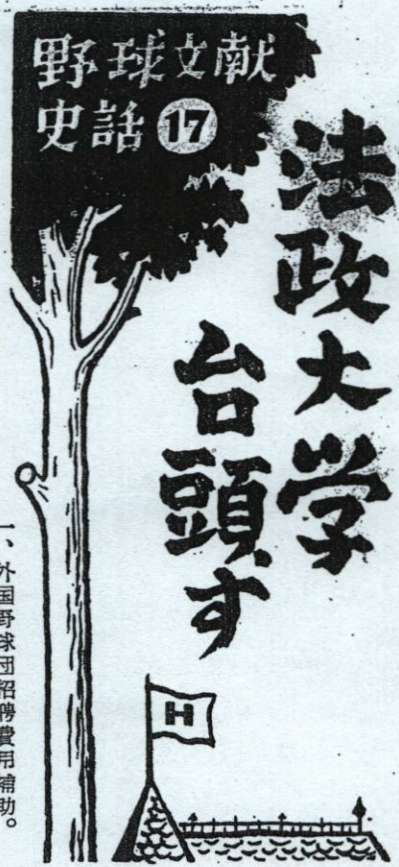 野球文献
史話⑰
法政大学
台頭す
H
一、外国野球団招聘費用補助。